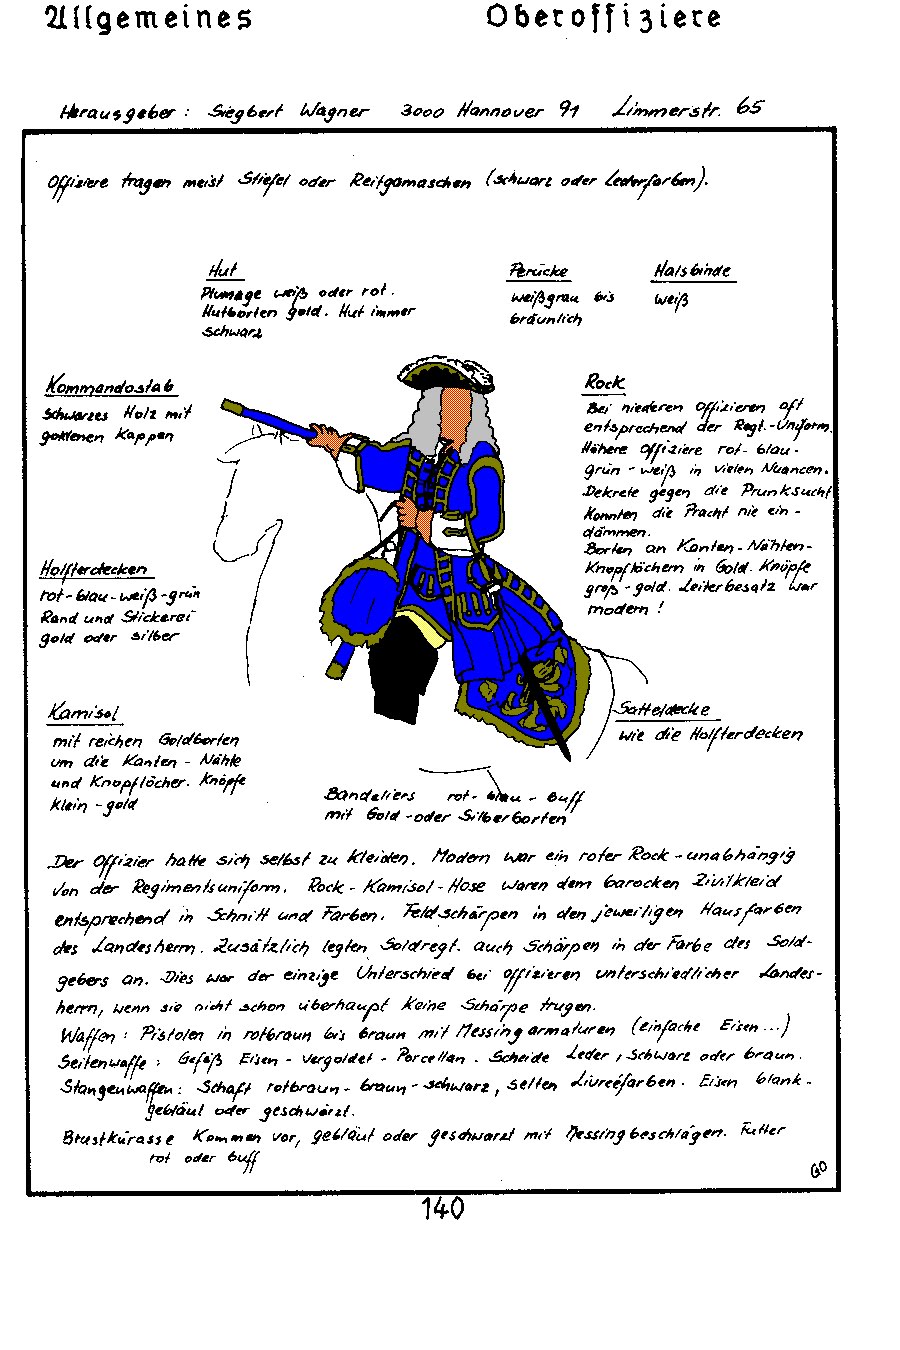 Allgemeines Oberoffiziere
Herausgeber : Siegbert Wagner 3000 Hannover 91 Limmerstr. 65
Offiziere tragen meist Stiefel oder Reitgamaschen (schwarz oder Lederfarben).
Hut
Plumage weiß oder rot.
Hutborten gold. Hut immer
schwarz
Perücke
weißgrau bis
bräunlich
Halsbinde
weiß
Kommandostab
schwarzes Holz mit
goldenen Kappen
Rock
Bei niederen Offizieren oft
entsprechend der Regt.-Uniform.
Höhere Offiziere rot-blau-
grün-weiß in vielen Nuancen.
Dekrete gegen die Prunksucht
konnten die Pracht nie ein-
dämmen.
Borten an Kanten-Nähten-
Knopflöchern in Gold. Knöpfe
groß-gold. Leiterbesatz war
modern !
Holfterdecken
rot-blau-weiß-grün
Rand und Stickerei
gold oder silber
Kamisol
mit reichen Goldborten
um die Kanten - Nähte
und Knopflöcher. Knöpfe
klein-gold
Satteldecke
wie die Holfterdecken
Bandeliers rot-blau-buff
mit Gold-oder Silberborten
Der Offizier hatte sich selbst zu kleiden. Modern war ein roter Rock-unabhängig
von der Regimentsuniform. Rock-Kamisol-Hose waren dem barocken Zivilkleid
entsprechend in Schnitt und Farben. Feldschärpen in den jeweiligen Hausfarben
des Landesherrn. Zusätzlich legten Soldregt. auch Schärpen in der Farbe des Sold-
gebers an. Dies war der einzige Unterschied bei Offizieren unterschiedlicher Landes-
herrn, wenn sie nicht schon überhaupt keine Schärpe trugen.
Waffen : Pistolen in rotbraun bis braun mit Messingarmaturen (einfache Eisen...)
Seitenwaffe : Gefäß Eisen-vergoldet-Porcellan. Scheide Leder, schwarz oder braun.
Stangenwaffen: Schaft rotbraun-braun-schwarz, selten Livreefarben. Eisen blank-
gebläut oder geschwärzt.
Brustkürasse kommen vor, gebläut oder geschwärzt mit Messingbeschlägen. Futter
rot oder buff
GO
140